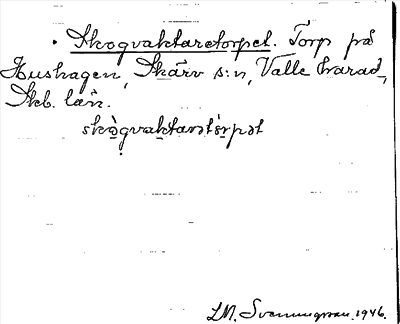 Skogvaktaretorpet. Torp på
Hushagen, Skärv s:n, Valle härad,
Skb. län.
skògvaktarətòrpət
LM. Svenungsson. 1946.